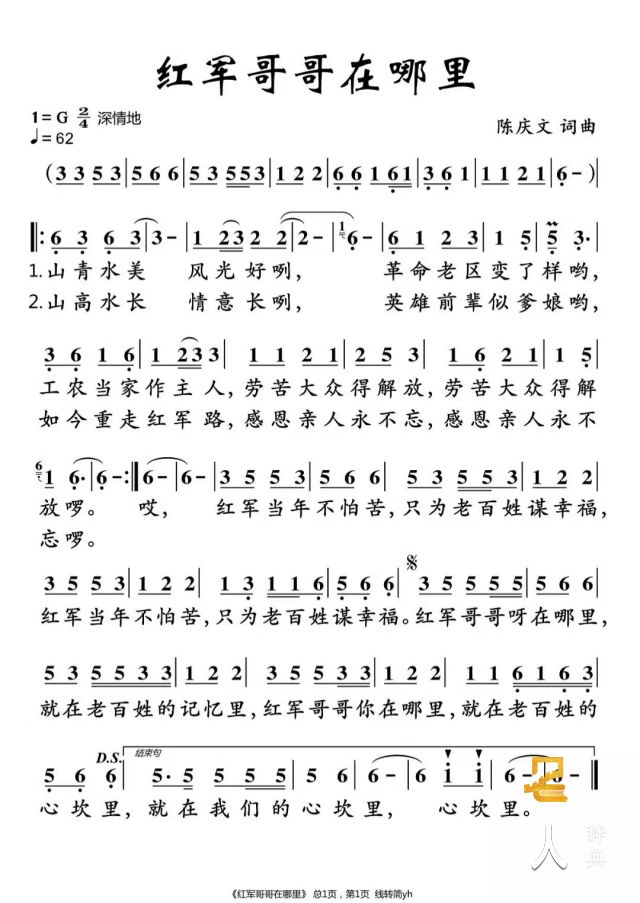 红军哥哥在哪里
1=G 2/4 深情地
♩=62
陈庆文 词曲
(3 3 5 3|5 6 6|5 3 5 5 3|1 2 2|6 6 1 6 1|3 6 6|1 1 2 1|6 -)|
|:6 3 6 3|3 -|1 2 3 2 2|2 - 1 6·|6 1 2 3|1 5|5 3·|
1.山青水美 风光好咧, 革命老区变了样哟,
2.山高水长 情意长咧, 英雄前辈似爹娘哟,
3 6 1 6|1 2 3 3|1 1 2 1|6 2 2|3 6 1 6|1 2 5|
工农当家作主人,劳苦大众得解放,劳苦大众得解
如今重走红军路,感恩亲人永不忘,感恩亲人永不
6 1 6·|6 -:|6 - 6 -|3 5 5 3|5 6 6|5 3 5 5 3|1 2 2|
放啰。 哎, 红军当年不怕苦,只为老百姓谋幸福,
忘啰。
3 5 5 3|1 2 2|1 3 1 1 6|5 6 6|3 5 5 5 5|3 5 5|
红军当年不怕苦,只为老百姓谋幸福。红军哥哥呀在哪里,
5 3 5 5 3 3|1 2 2|3 5 5 3 3|1 2 2|1 3 6 1 6 3|
就在老百姓的记忆里,红军哥哥你在哪里,就在老百姓的
D.S. 结束句
5 6 6|5· 5 3 5 5 5|5 6 6|6 - 6 i i|6 - 6 -|
心坎里,就在我们的心坎里, 心坎里。
人 辞典
《红军哥哥在哪里》 总1页,第1页 线转简yh